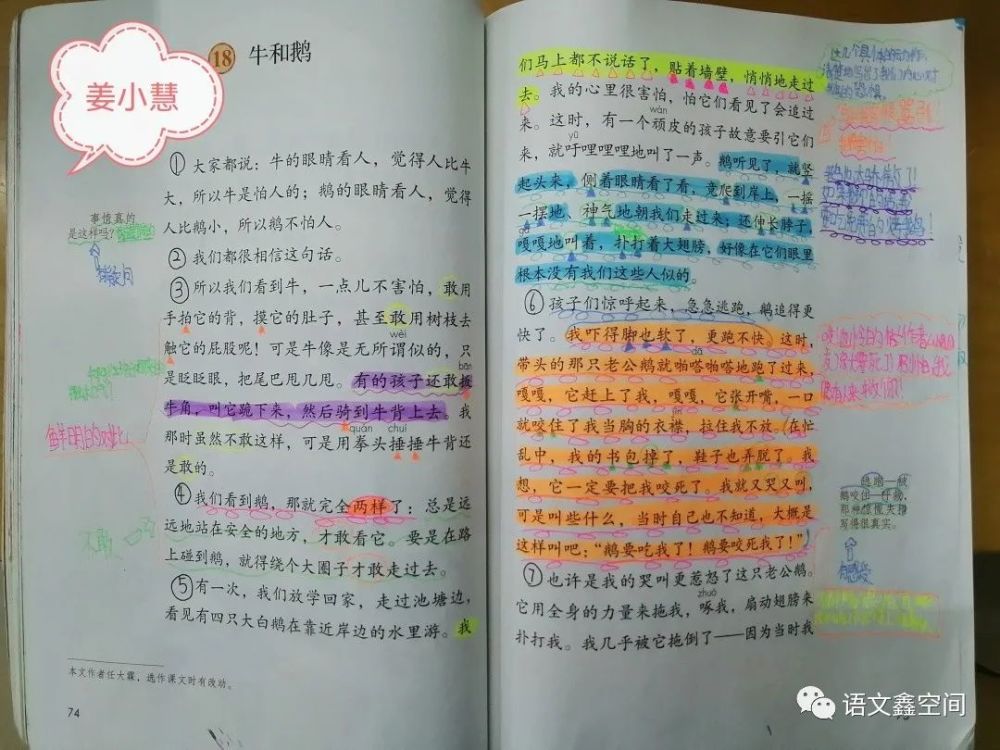 姜小慧
18 牛和鹅
① 大家都说：牛的眼睛看人，觉得人比牛
大，所以牛是怕人的；鹅的眼睛看人，觉得
人比鹅小，所以鹅不怕人。
事情真的
是这样吗？
② 我们都很相信这句话。
③ 所以我们看到牛，一点儿不害怕，敢用
手拍它的背，摸它的肚子，甚至敢用树枝去
wèi
触它的屁股呢！可是牛像是无所谓似的，只
bān
是眨眨眼，把尾巴甩几甩。有的孩子还敢扳
牛角，叫它跪下来，然后骑到牛背上去。我
quán chuí
那时虽然不敢这样，可是用拳头捶捶牛背还
是敢的。
鲜明的对比
④ 我们看到鹅，那就完全两样了：总是远
远地站在安全的地方，才敢看它。要是在路
上碰到鹅，就得绕个大圈子才敢走过去。
⑤ 有一次，我们放学回家，走过池塘边，
看见有四只大白鹅在靠近岸边的水里游。我
本文作者任大霖，选作课文时有改动。
74
们马上都不说话了，贴着墙壁，悄悄地走过
去。我的心里很害怕，怕它们看见了会追过
wán
来。这时，有一个顽皮的孩子故意要引它们
yū
来，就吁哩哩哩地叫了一声。鹅听见了，就竖
起头来，侧着眼睛看了看，竟爬到岸上，一摇
一摆地、神气地朝我们走过来；还伸长脖子，
嘎嘎地叫着，扑打着大翅膀，好像在它们眼里
根本没有我们这些人似的。
⑥ 孩子们惊呼起来，急急逃跑，鹅追得更
快了。我吓得脚也软了，更跑不快。这时，
dā
带头的那只老公鹅就啪嗒啪嗒地跑了过来，
嘎嘎，它赶上了我，嘎嘎，它张开嘴，一口
就咬住了我当胸的衣襟，拉住我不放。在忙
乱中，我的书包掉了，鞋子也弄脱了。我
想，它一定要把我咬死了。我就又哭又叫，
可是叫些什么，当时自己也不知道，大概是
这样叫吧：“鹅要吃我了！鹅要咬死我了！”
逃跑—被
鹅咬住—呼救，
那种惊慌失措
写得很真实。
⑦ 也许是我的哭叫更惹怒了这只老公鹅。
zhuó
它用全身的力量来拖我，啄我，扇动翅膀来
扑打我。我几乎被它拖倒了——因为当时我
语文鑫空间